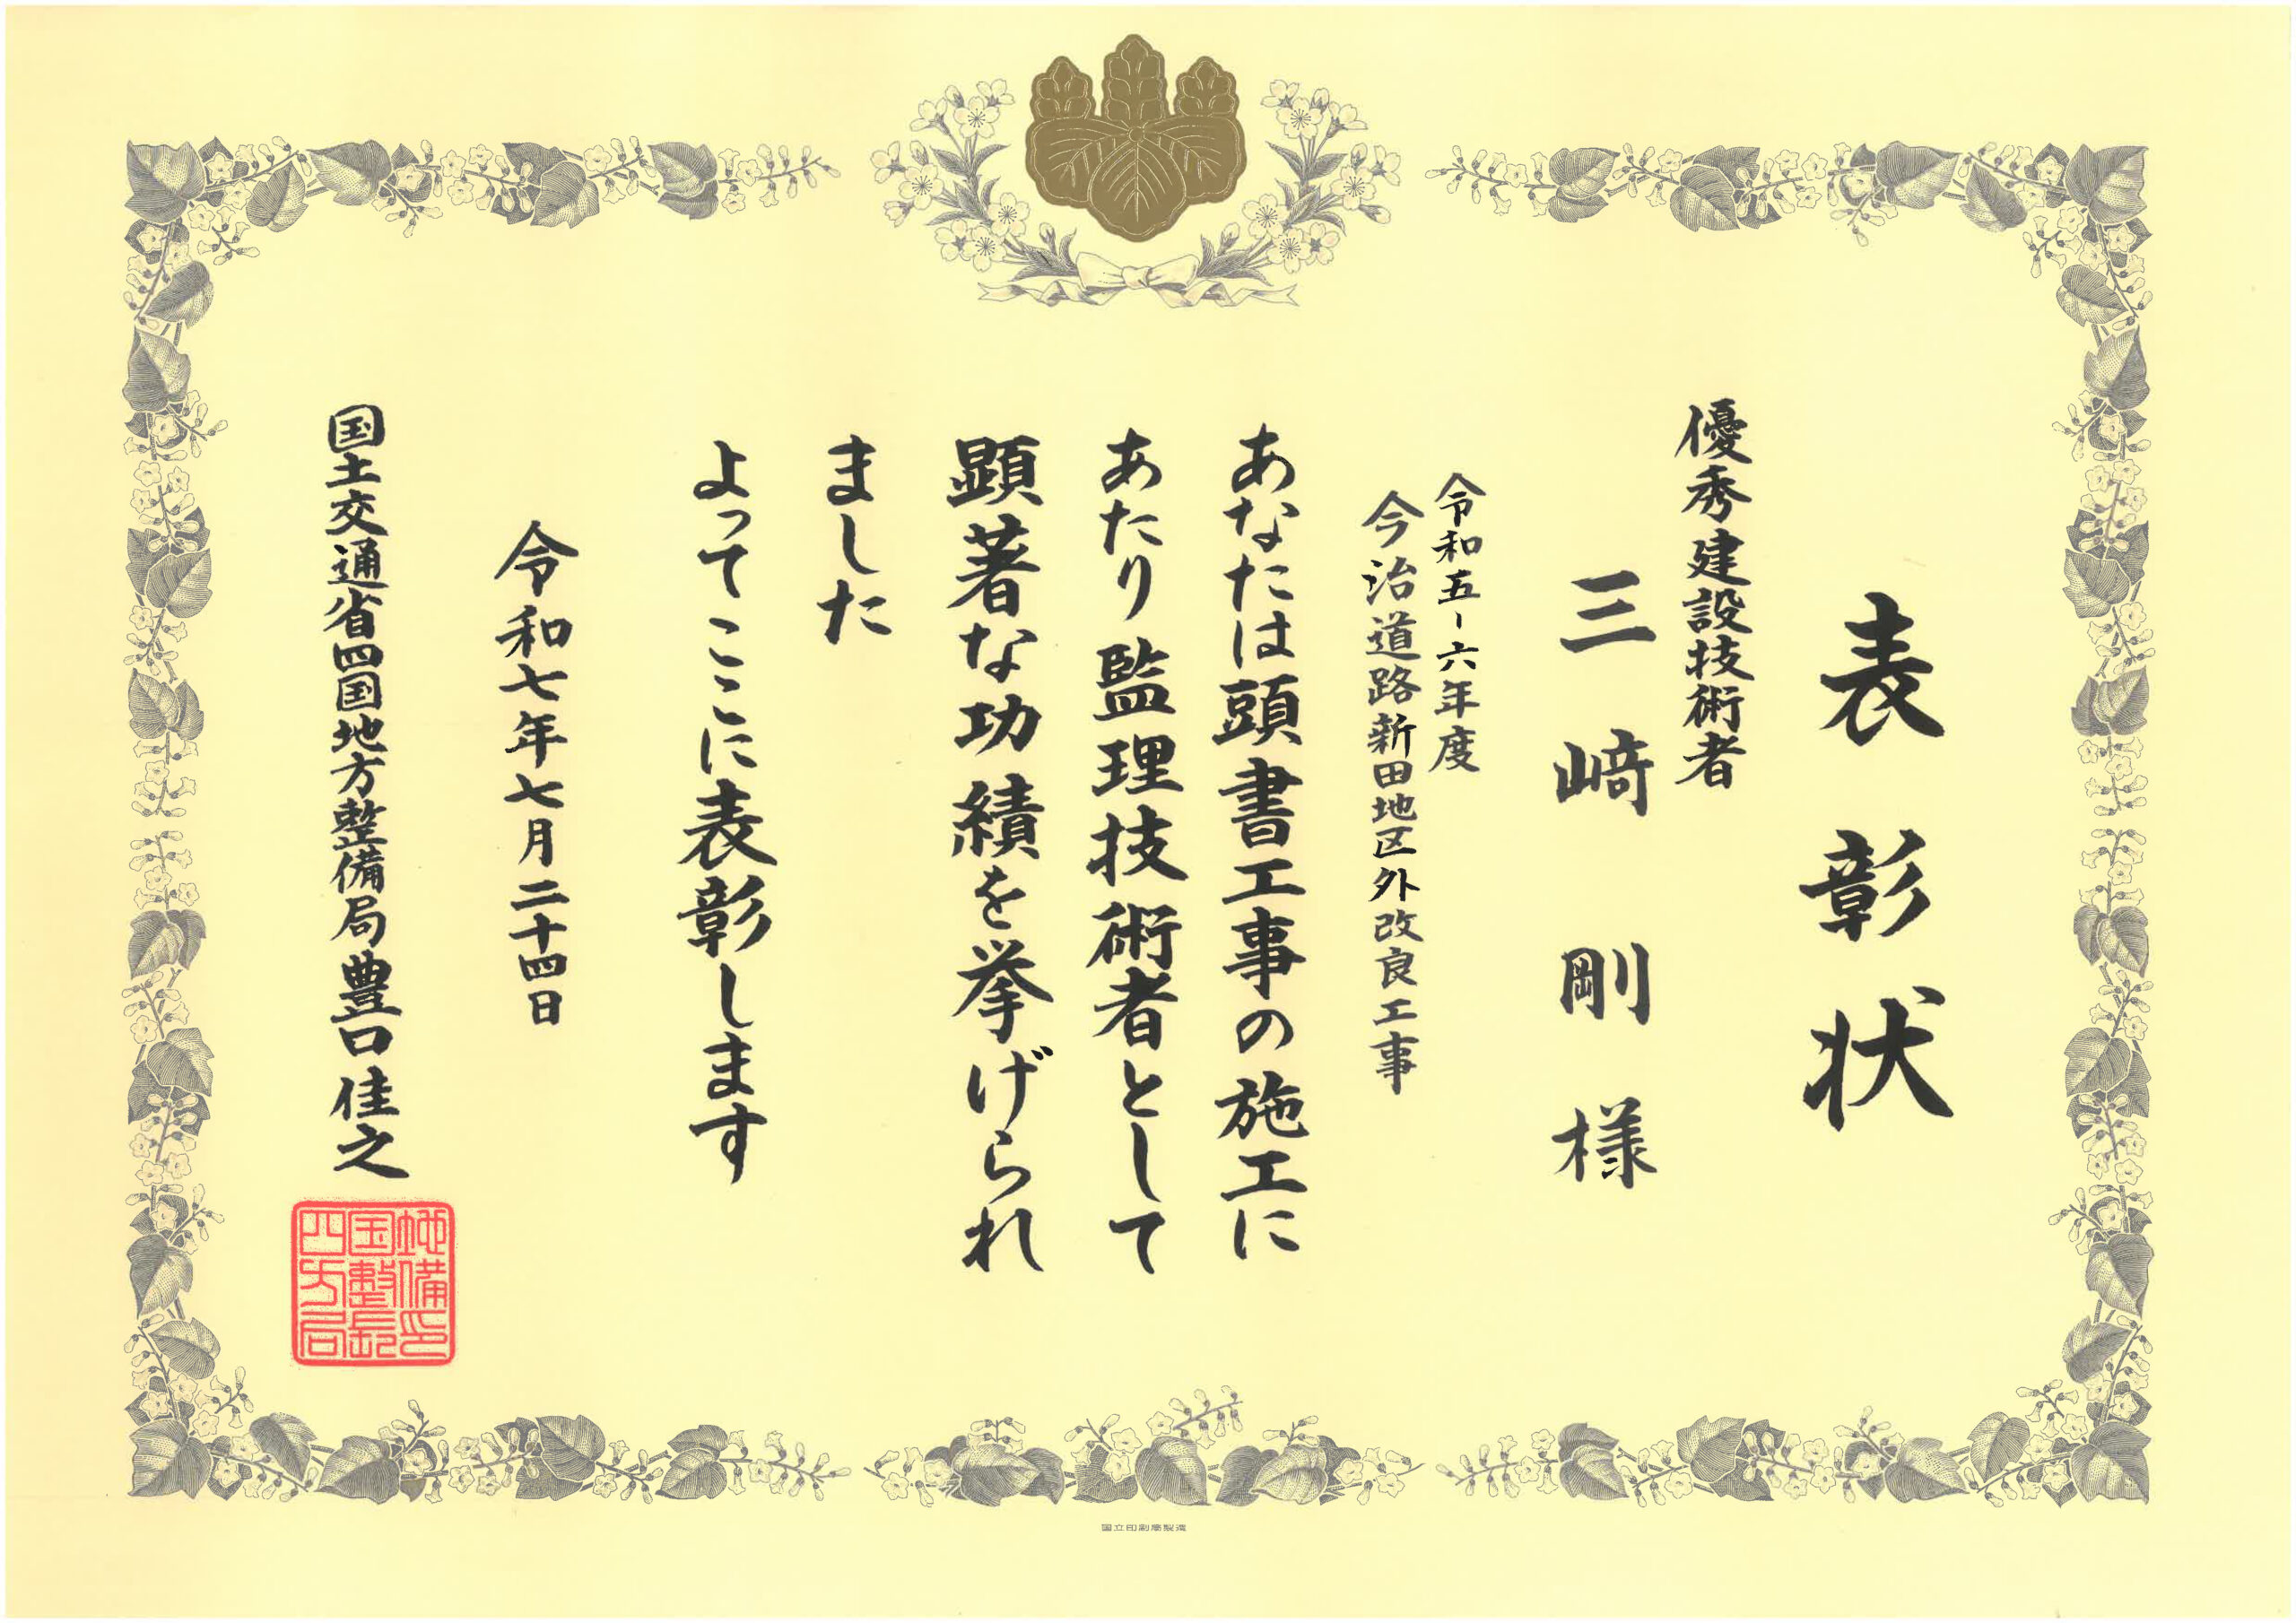 表彰状
優秀建設技術者
三﨑剛様
令和五-六年度
今治道路新田地区外改良工事
あなたは頭書工事の施工に
あたり監理技術者として
顕著な功績を挙げられ
ました
よってここに表彰します
令和七年七月二十四日
国土交通省四国地方整備局長豊口佳之
四国地
方整備
局長印
国立印刷局製造